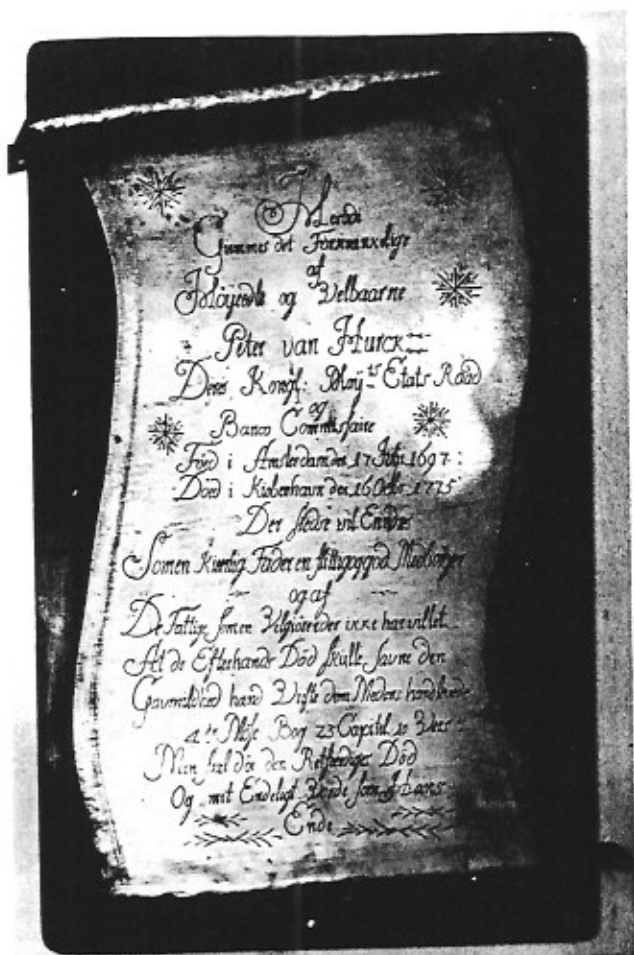 Herudi
Giemmes det Forkrænkelige
af
Høyædle og Velbaarne
Piter van Hurck
Deris Kongl: May.ts Etats Raad
og
Banco Commissaire
Fød i Amsterdam den 17 1697:
Død i Kiøbenhavn den 16 Octbr 1775
Der stedse vil
Som en Kierlig Fader en flittig og god Medborger
og af
De Fattige som en Velgiører der ikke har villet
At de Efter hands Død skulle savne den
Gavmildhed hand Viste dem Medens hand levede
4.de Mose Bog 23 Capitel 10 Vers
Min siæl døe den Retfærdiges Død
Og mit Endeligt Vorde som Hans
Ende